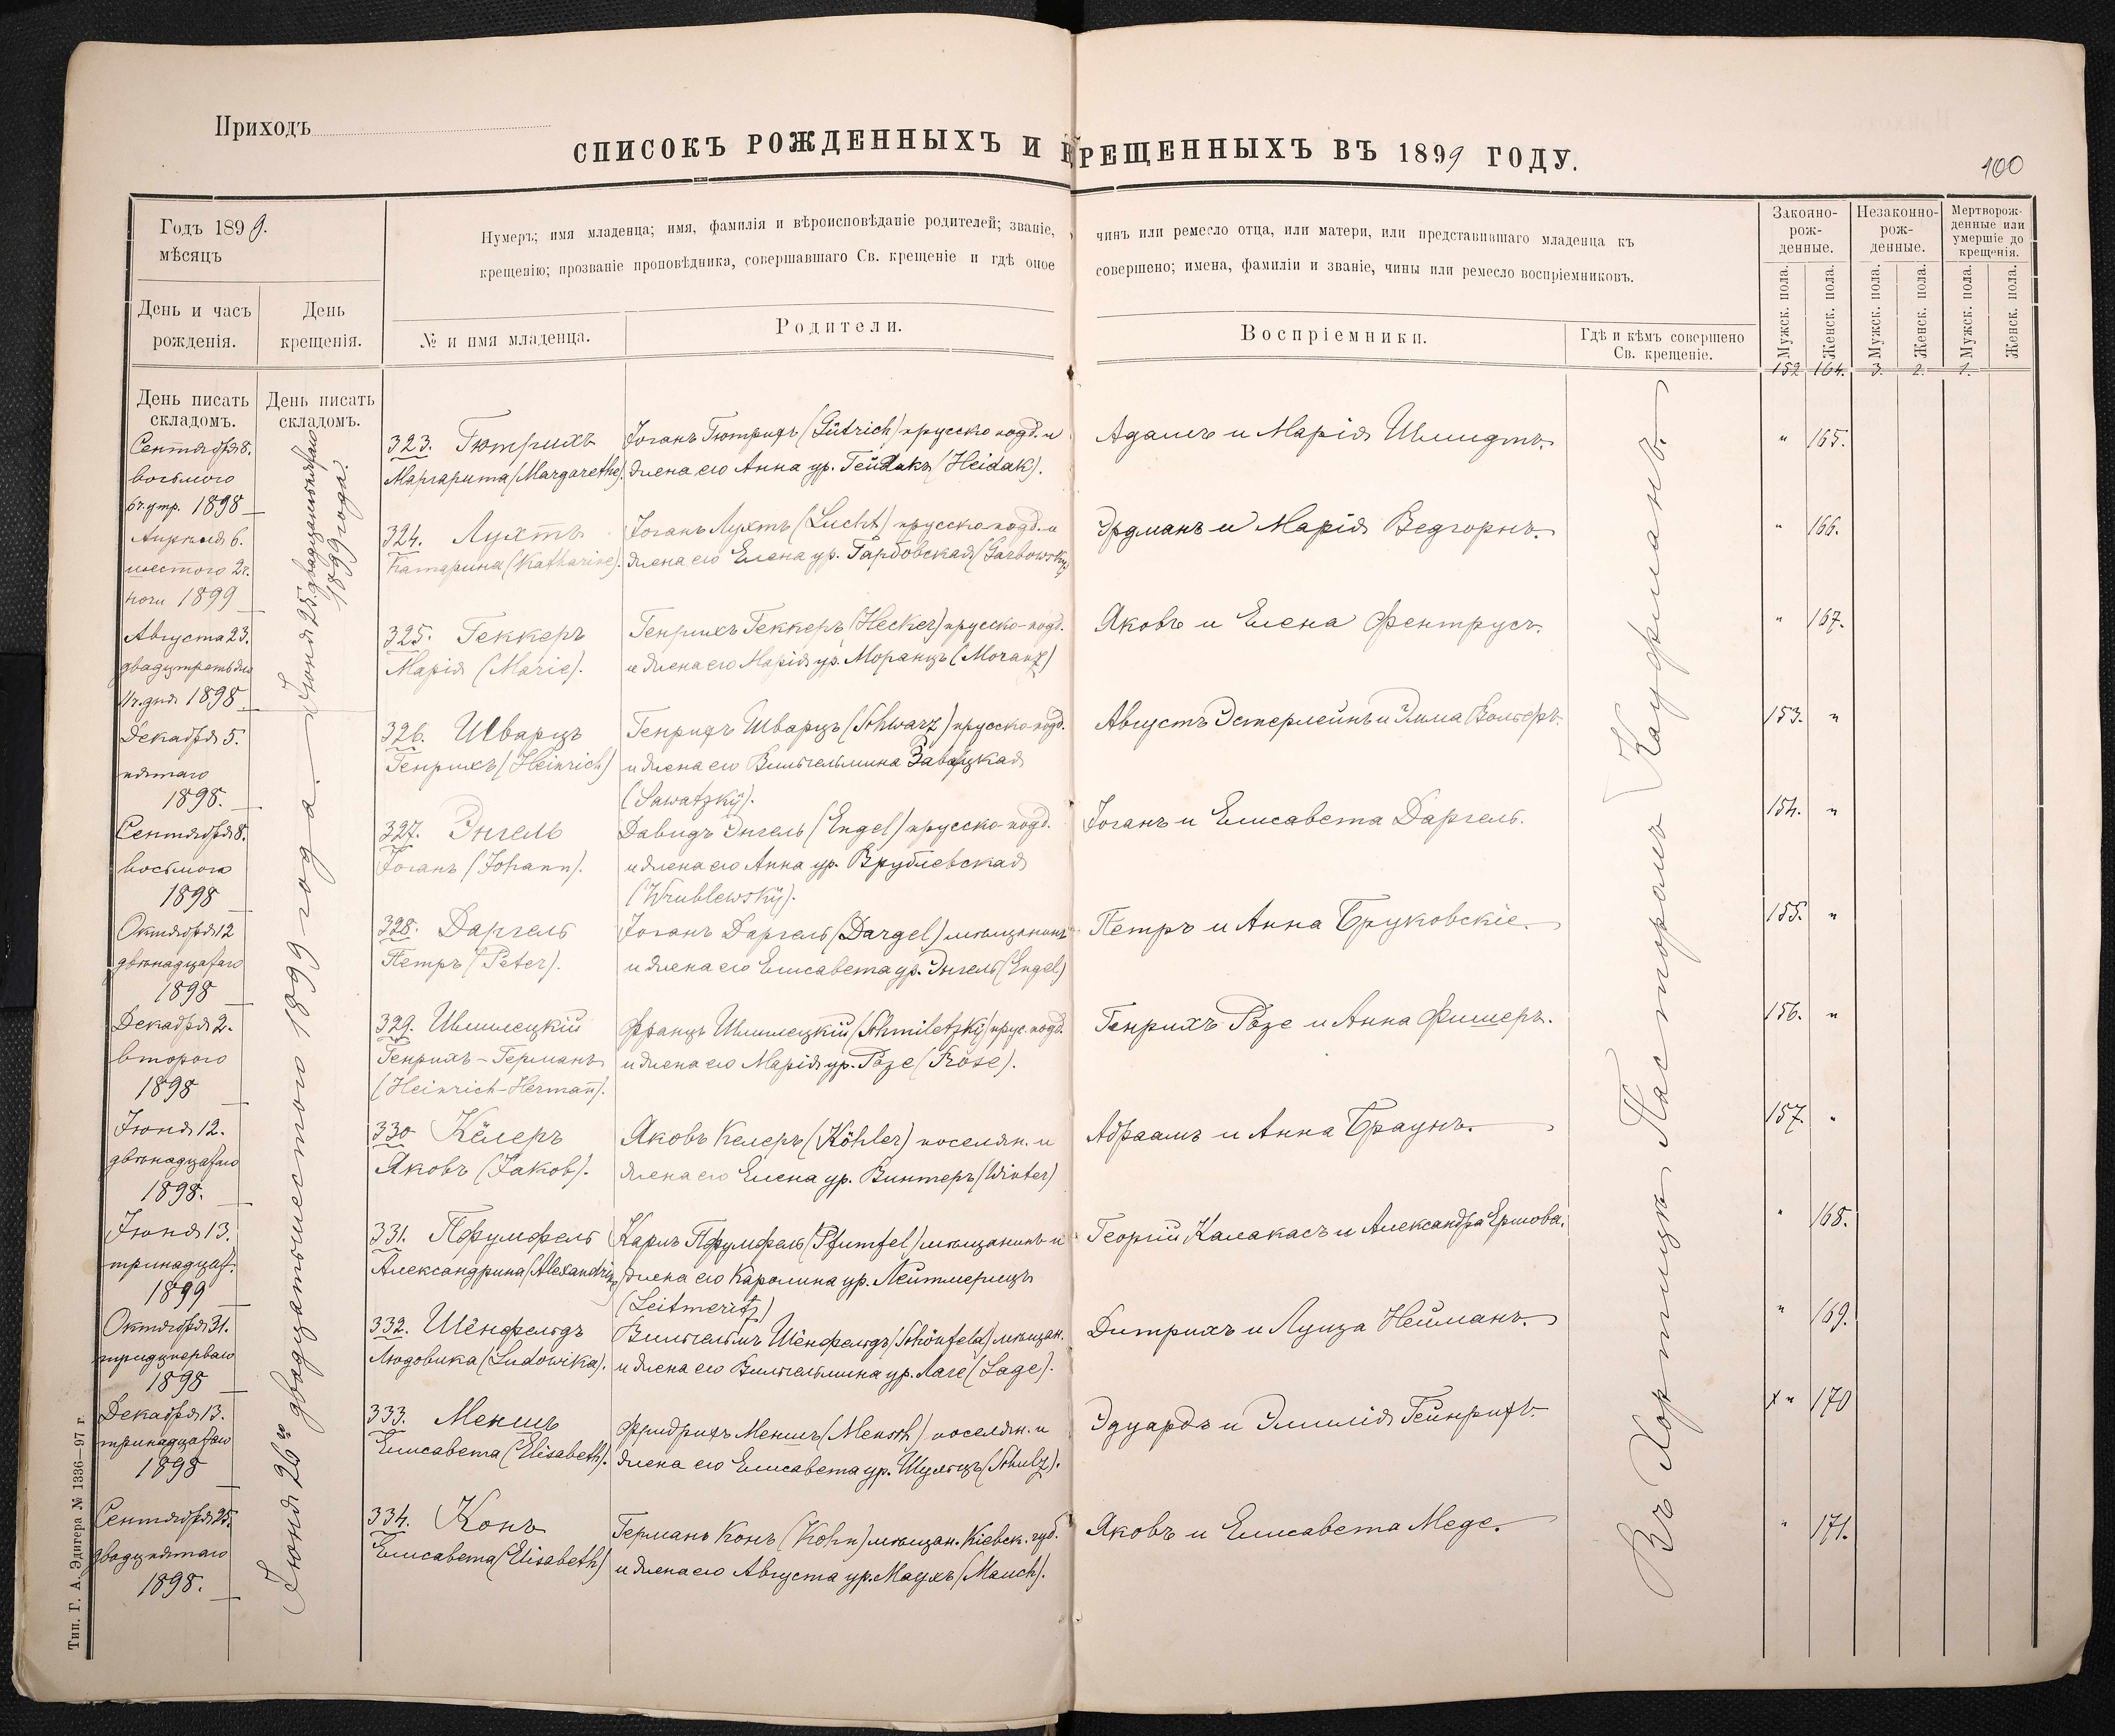 Приходъ
СПИСОКЪ РОЖДЕННЫХЪ И КРЕЩЕННЫХЪ ВЪ 1899 ГОДУ.
100
Годъ 1899.
мѣсяцъ
День и часъ рожденія.
День крещенія.
Нумеръ; имя младенца; имя, фамилія и вѣроисповѣданіе родителей; званіе, чинъ или ремесло отца, или матери, или представившаго младенца къ
крещенію; прозваніе проповѣдника, совершавшаго Св. крещеніе и гдѣ оное совершено; имена, фамиліи и званіе, чины или ремесло воспріемниковъ.
№ и имя младенца.
Родители.
Воспріемники.
Гдѣ и кѣмъ совершено
Св. крещеніе.
Законно-
рож-
денные.
Незаконно-
рож-
денные.
Мертворож-
денные или
умершіе до
крещенія.
Мужск. пола.
Женск. пола.
Мужск. пола.
Женск. пола.
Мужск. пола.
Женск. пола.
152 164. 3. 2. 1.
День писать
складомъ.
День писать
складомъ.
Сентября 8.
восьмого
6 ч. утр. 1898
323. Гютрихъ
Маргарита (Margarethe).
Іоганъ Гютрихъ (Gütrich) прусско-подд. и
жена его Анна ур. Гейдакъ (Heidak).
Адамъ и Марія Шмидтъ.
" 165.
Апрѣля 6.
шестого 2 ч.
ночи 1899
324. Лухтъ
Катарина (Katharine).
Іоганъ Лухтъ (Lucht) прусско-подд. и
жена его Елена ур. Гарбовская (Garbowsky)
Эрдманъ и Марія Ведгорнъ.
" 166.
Августа 23.
двадцтретьяго
1 ч. дня 1898
325. Геккеръ
Марія (Marie).
Генрихъ Геккеръ (Hecker) прусско-подд.
и жена его Марія ур. Моранцъ (Moranz)
Яковъ и Елена Фентрусъ.
" 167.
Іюня 25. двадцатьпятаго
1899 года.
Декабря 5.
пятаго
1898.
326. Шварцъ
Генрихъ (Heinrich)
Генрихъ Шварцъ (Schwarz) прусско-подд.
и жена его Вильгельмина Завацкая
(Sawatzky).
Августъ Эстерлейнъ и Эмма Вольфъ.
153. "
Сентября 8.
восьмого
1898
327. Энгель
Іоганъ (Johann).
Давидъ Энгель (Engel) прусско-подд.
и жена его Анна ур. Врублевская
(Wrublewsky).
Іоганъ и Елисавета Даргель.
154. "
Октября 12
двѣнадцатаго
1898
328. Даргель
Петръ (Peter).
Іоганъ Даргель (Dargel) мѣщанинъ
и жена его Елисавета ур. Энгель (Engel)
Петръ и Анна Бруковскіе.
155. "
Декабря 2.
второго
1898
329. Шмилецкій
Генрихъ-Германъ
(Heinrich-Hermañ).
Францъ Шмилецкій (Schmiletzky) прус. подд.
и жена его Марія ур. Рэзе (Röse).
Генрихъ Рэзе и Анна Фишеръ.
156. "
Іюня 12.
двѣнадцатаго
1898.
330 Кёлеръ
Яковъ (Jakob).
Яковъ Келеръ (Köhler) поселян. и
жена его Елена ур. Винтеръ (Winter)
Абраамъ и Анна Браунъ.
157. "
Іюня 13.
тринадцат.
1899
331. Пфумфель
Александрина (Alexandrine)
Карлъ Пфумфель (Pfumfel) мѣщанинъ и
жена его Каролина ур. Лейтмерицъ
(Leitmeritz)
Георгій Калакасъ и Александра Ершова.
" 168.
Октября 31.
тридцперваго
1898
332. Шёнфельдъ
Людовика (Ludowika).
Вильгельмъ Шёнфельдъ (Schönfeld) мѣщан.
и жена его Вильгельмина ур. Лаге (Lage).
Дитрихъ и Луиза Нейманъ.
" 169.
Декабря 13.
тринадцатаго
1898
333. Меншъ
Елисавета (Elisabeth).
Фридрихъ Меншъ (Mensch) поселян. и
жена его Елисавета ур. Шульцъ (Schulz).
Эдуардъ и Эмилія Гейнрихъ.
х " 170
Сентября 25.
двадцпятаго
1898.
334. Конъ
Елисавета (Elisabeth)
Германъ Конъ (Kohn) мѣщан. Кіевск. губ.
и жена его Августа ур. Маухъ (Mauch).
Яковъ и Елисавета Меде.
" 171.
Іюня 26го двадцатьшестого 1899 года.
Въ Хортицѣ Пасторомъ Кауфманъ.
Тип. Г. А. Эдигера № 1336—97 г.